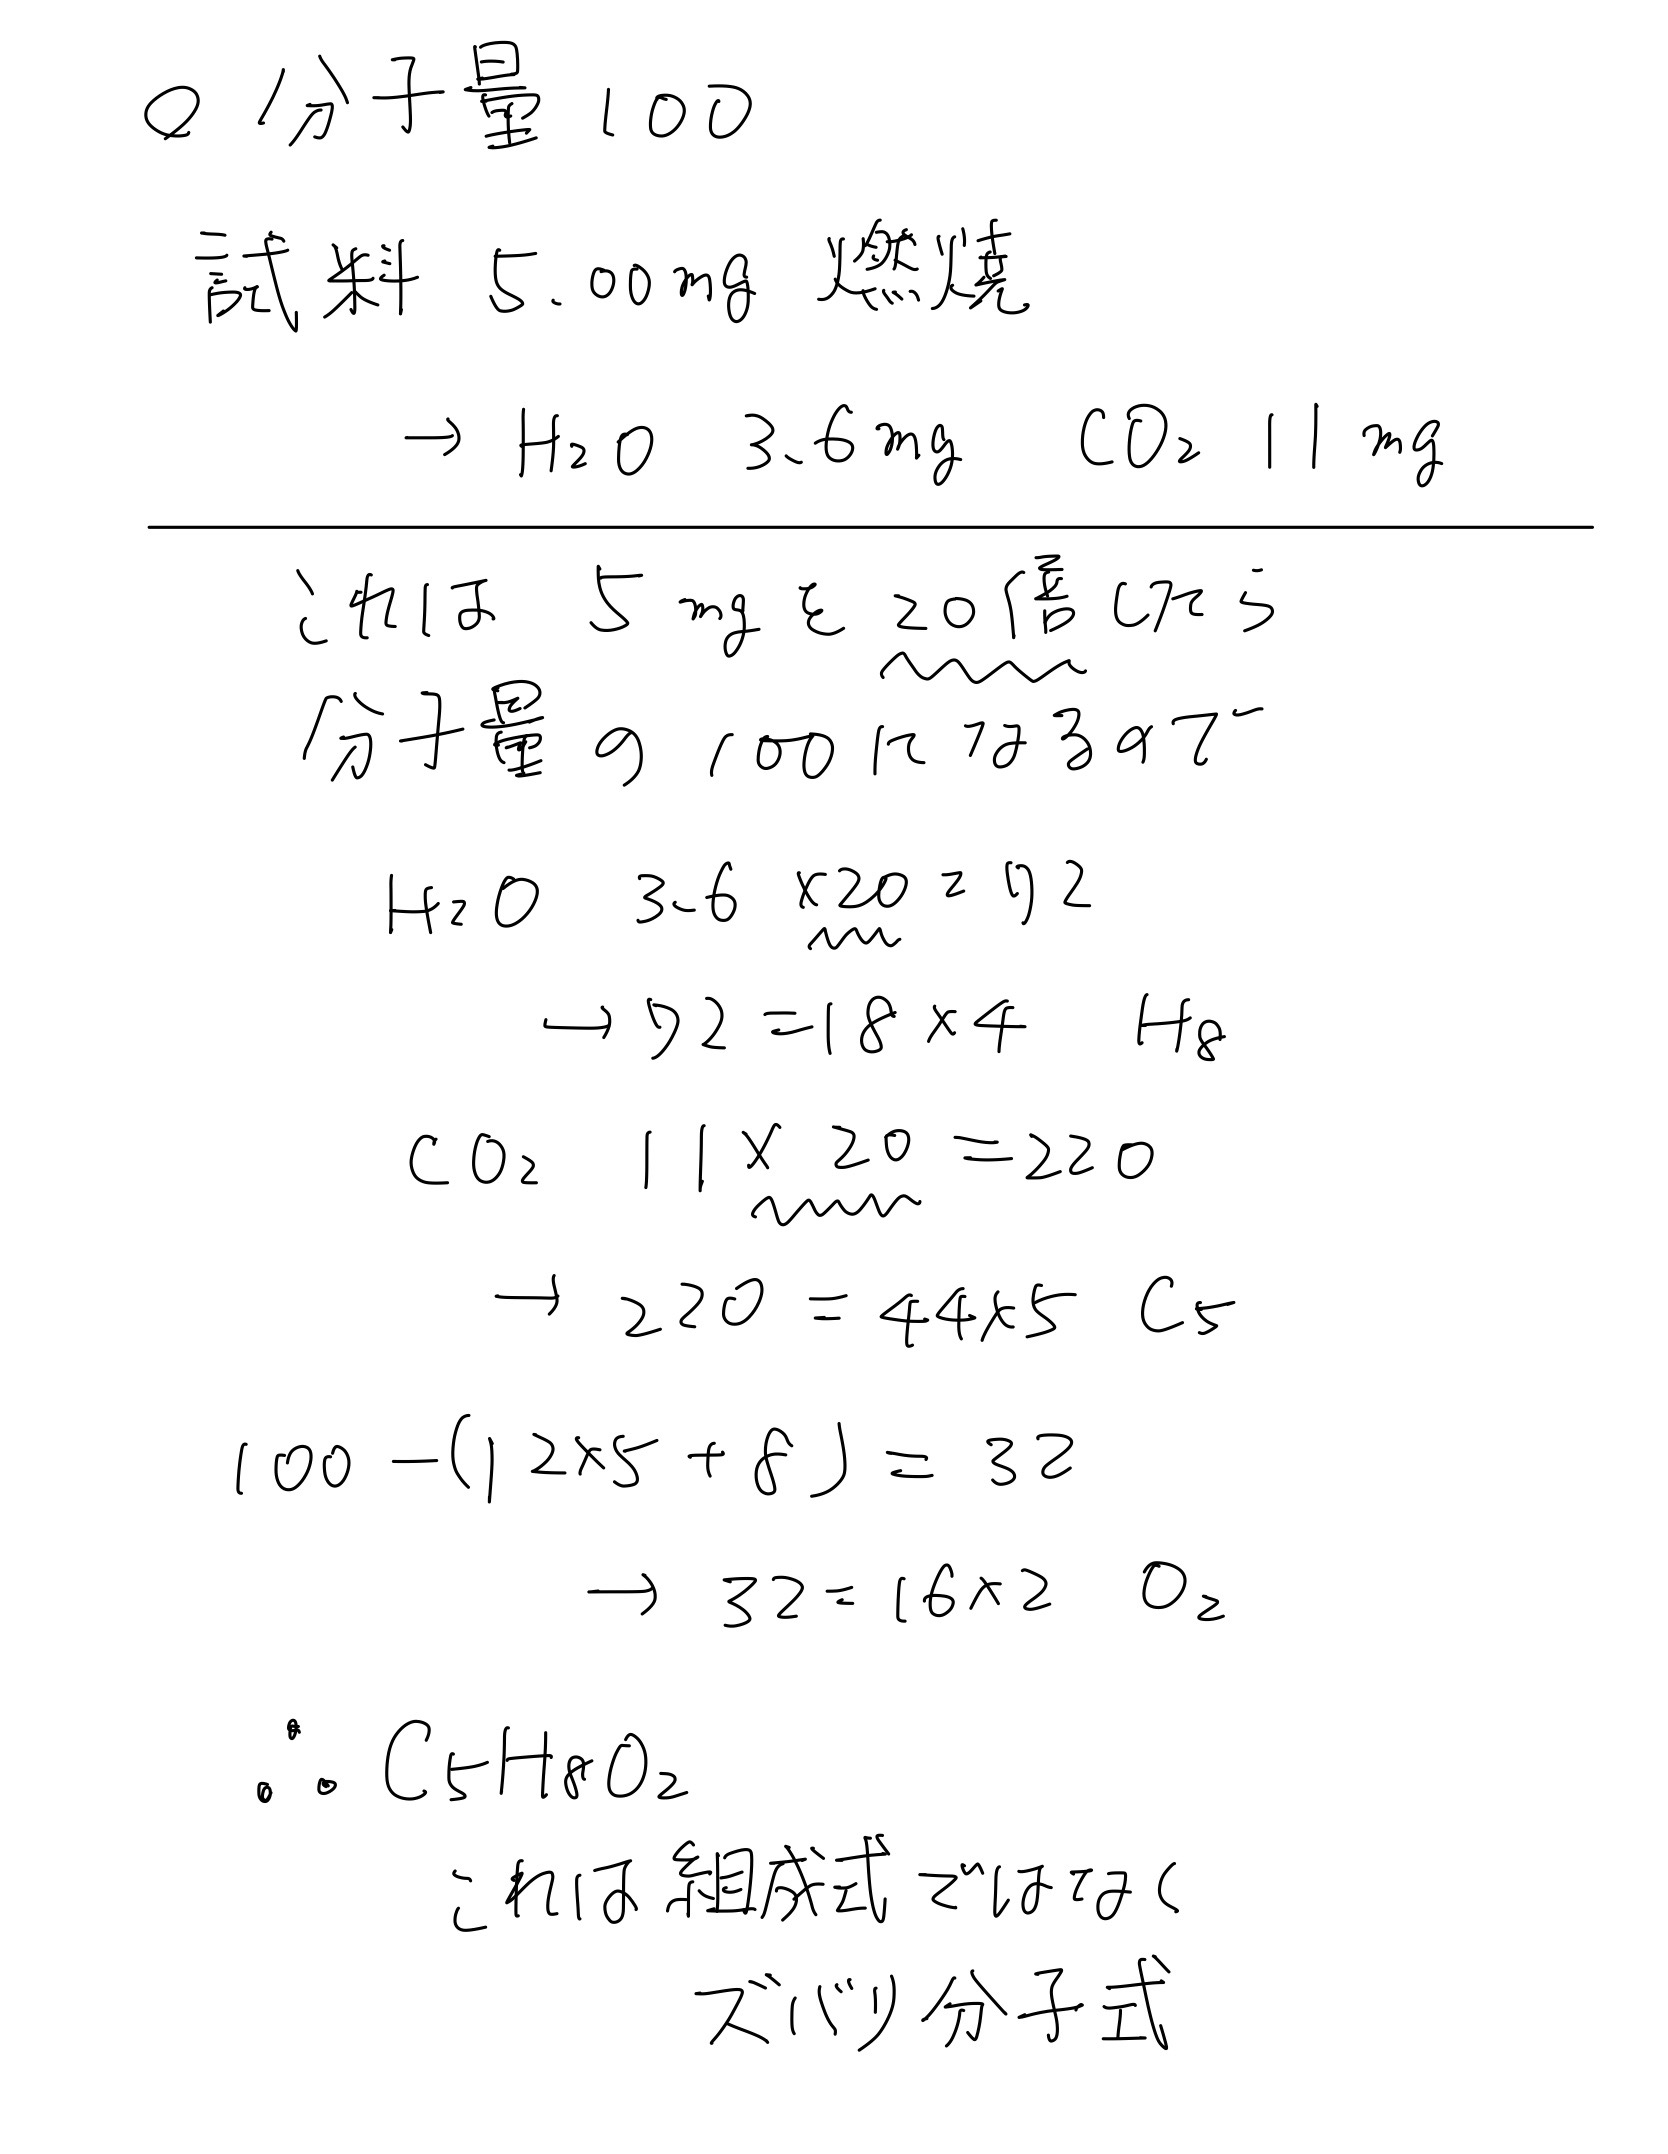 ○ 分子量 100
試料 5.00mg 燃焼
→ H₂O 3.6mg CO₂ 11mg
これは 5mgを20倍したら
分子量の100になるので
H₂O 3.6×20=72
→72=18×4 H₈
CO₂ 11×20=220
→220=44×5 C₅
100-(12×5+8)=32
→32=16×2 O₂
∴ C₅H₈O₂
これは組成式ではなく
ズバリ分子式